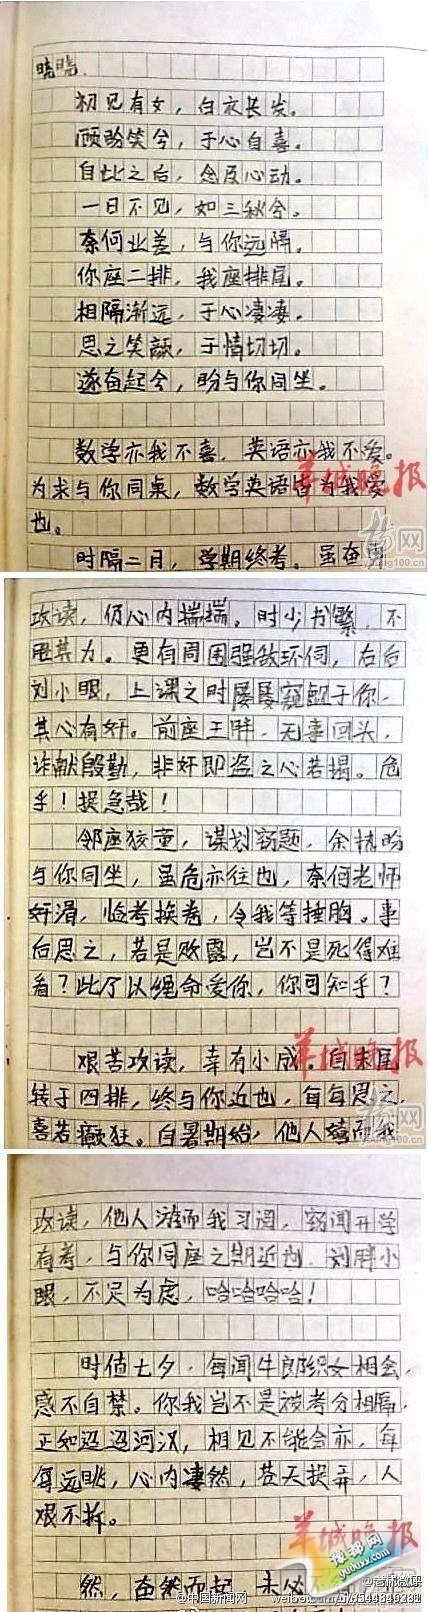 晓晓.
初见有女，白衣长发。
顾盼笑兮，于心自喜。
自此之后，念及心动。
一日不见，如三秋兮。
奈何业差，与你远隔。
你座二排，我座排尾。
相隔渐远，于心凄凄。
思之笑颜，于情切切。
遂奋起兮，盼与你同坐。
数学亦我不喜，英语亦我不爱。
为求与你同桌，数学英语皆为我爱
也。
羊城晚报
时隔二月，学期终考。虽奋再
攻读，仍心内揣揣。时少书繁，不
胜其力。更有周围强敌环伺，右后
刘小眼，上课之时屡屡窥觑于你，
其心有奸。前座王胖，无事回头，
诈献殷勤，非奸即盗之心若揭。危
乎！捉急哉！
邻座狡童，谋划窃题，余执盼
与你同坐，虽危亦往也，奈何老师
奸滑，临考换卷，令我等捶胸。事
后思之，若是败露，岂不是死得难
看？此乃以绳命爱你，你可知乎？
艰苦攻读，幸有小成。自末尾
羊城晚报
转于四排，终与你近也，每每思之，
喜若癫狂。自暑期始，他人嬉而我
攻读，他人游而我习阅，窃闻开学
有考，与你同座之期近也，刘胖小
眼，不足为虑，哈哈哈哈！
时值七夕，每闻牛郎织女相会，
感不自禁。你我岂不是被考分相隔，
正如迢迢河汉，相见不能会亦，每
每远眺，心内凄然，苍天捉弄，人
艰不拆。
羊城晚报
然，奋然而起，未必不
豫都网
@中国新闻网